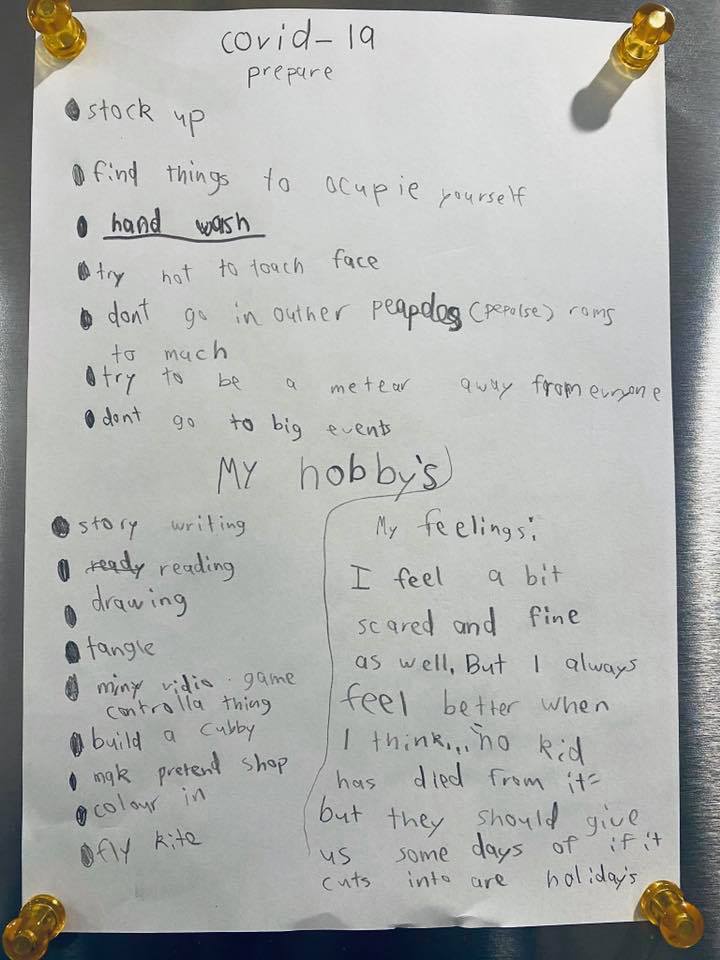 covid-19
prepare
stock up
find things to ocupie yourself
hand wash
try not to toach face
dont go in outher peapdes (pepolse) roms
to mach
try to be a metear away from euryone
dont go to big events
My hobby's
story writing
ready reading
drawing
tangle
miny vidio game
controlla thing
build a cubby
mak pretend shop
colour in
fly kite
My feelings:
I feel a bit
scared and fine
as well, But I always
feel better when
I think... no kid
has died from it
but they should give
us some days of if it
cuts into are holiday's